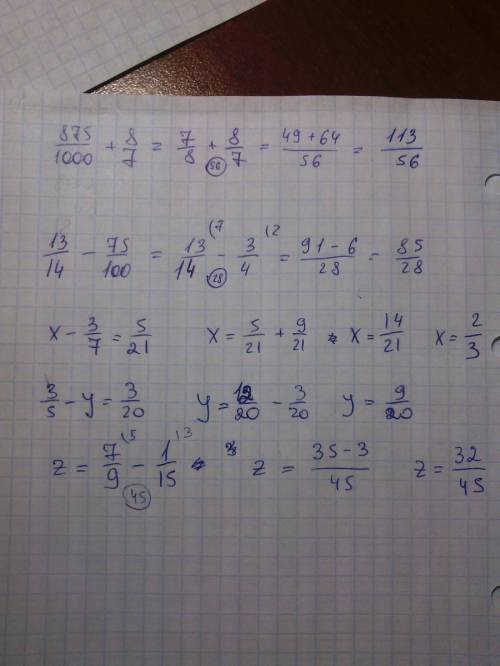 875/1000 + 8/7 = 7/8 + 8/7 (56) = (49+64)/56 = 113/56
13/14 - 75/100 = 13/14 (7 - 3/4 (2 (28) = (91-6)/28 = 85/28
x - 3/7 = 5/21 x = 5/21 + 9/21 x = 14/21 x = 2/3
3/5 - y = 3/20 y = 12/20 - 3/20 y = 9/20
z = 7/9 (5 - 1/15 (3 (45) z = (35-3)/45 z = 32/45